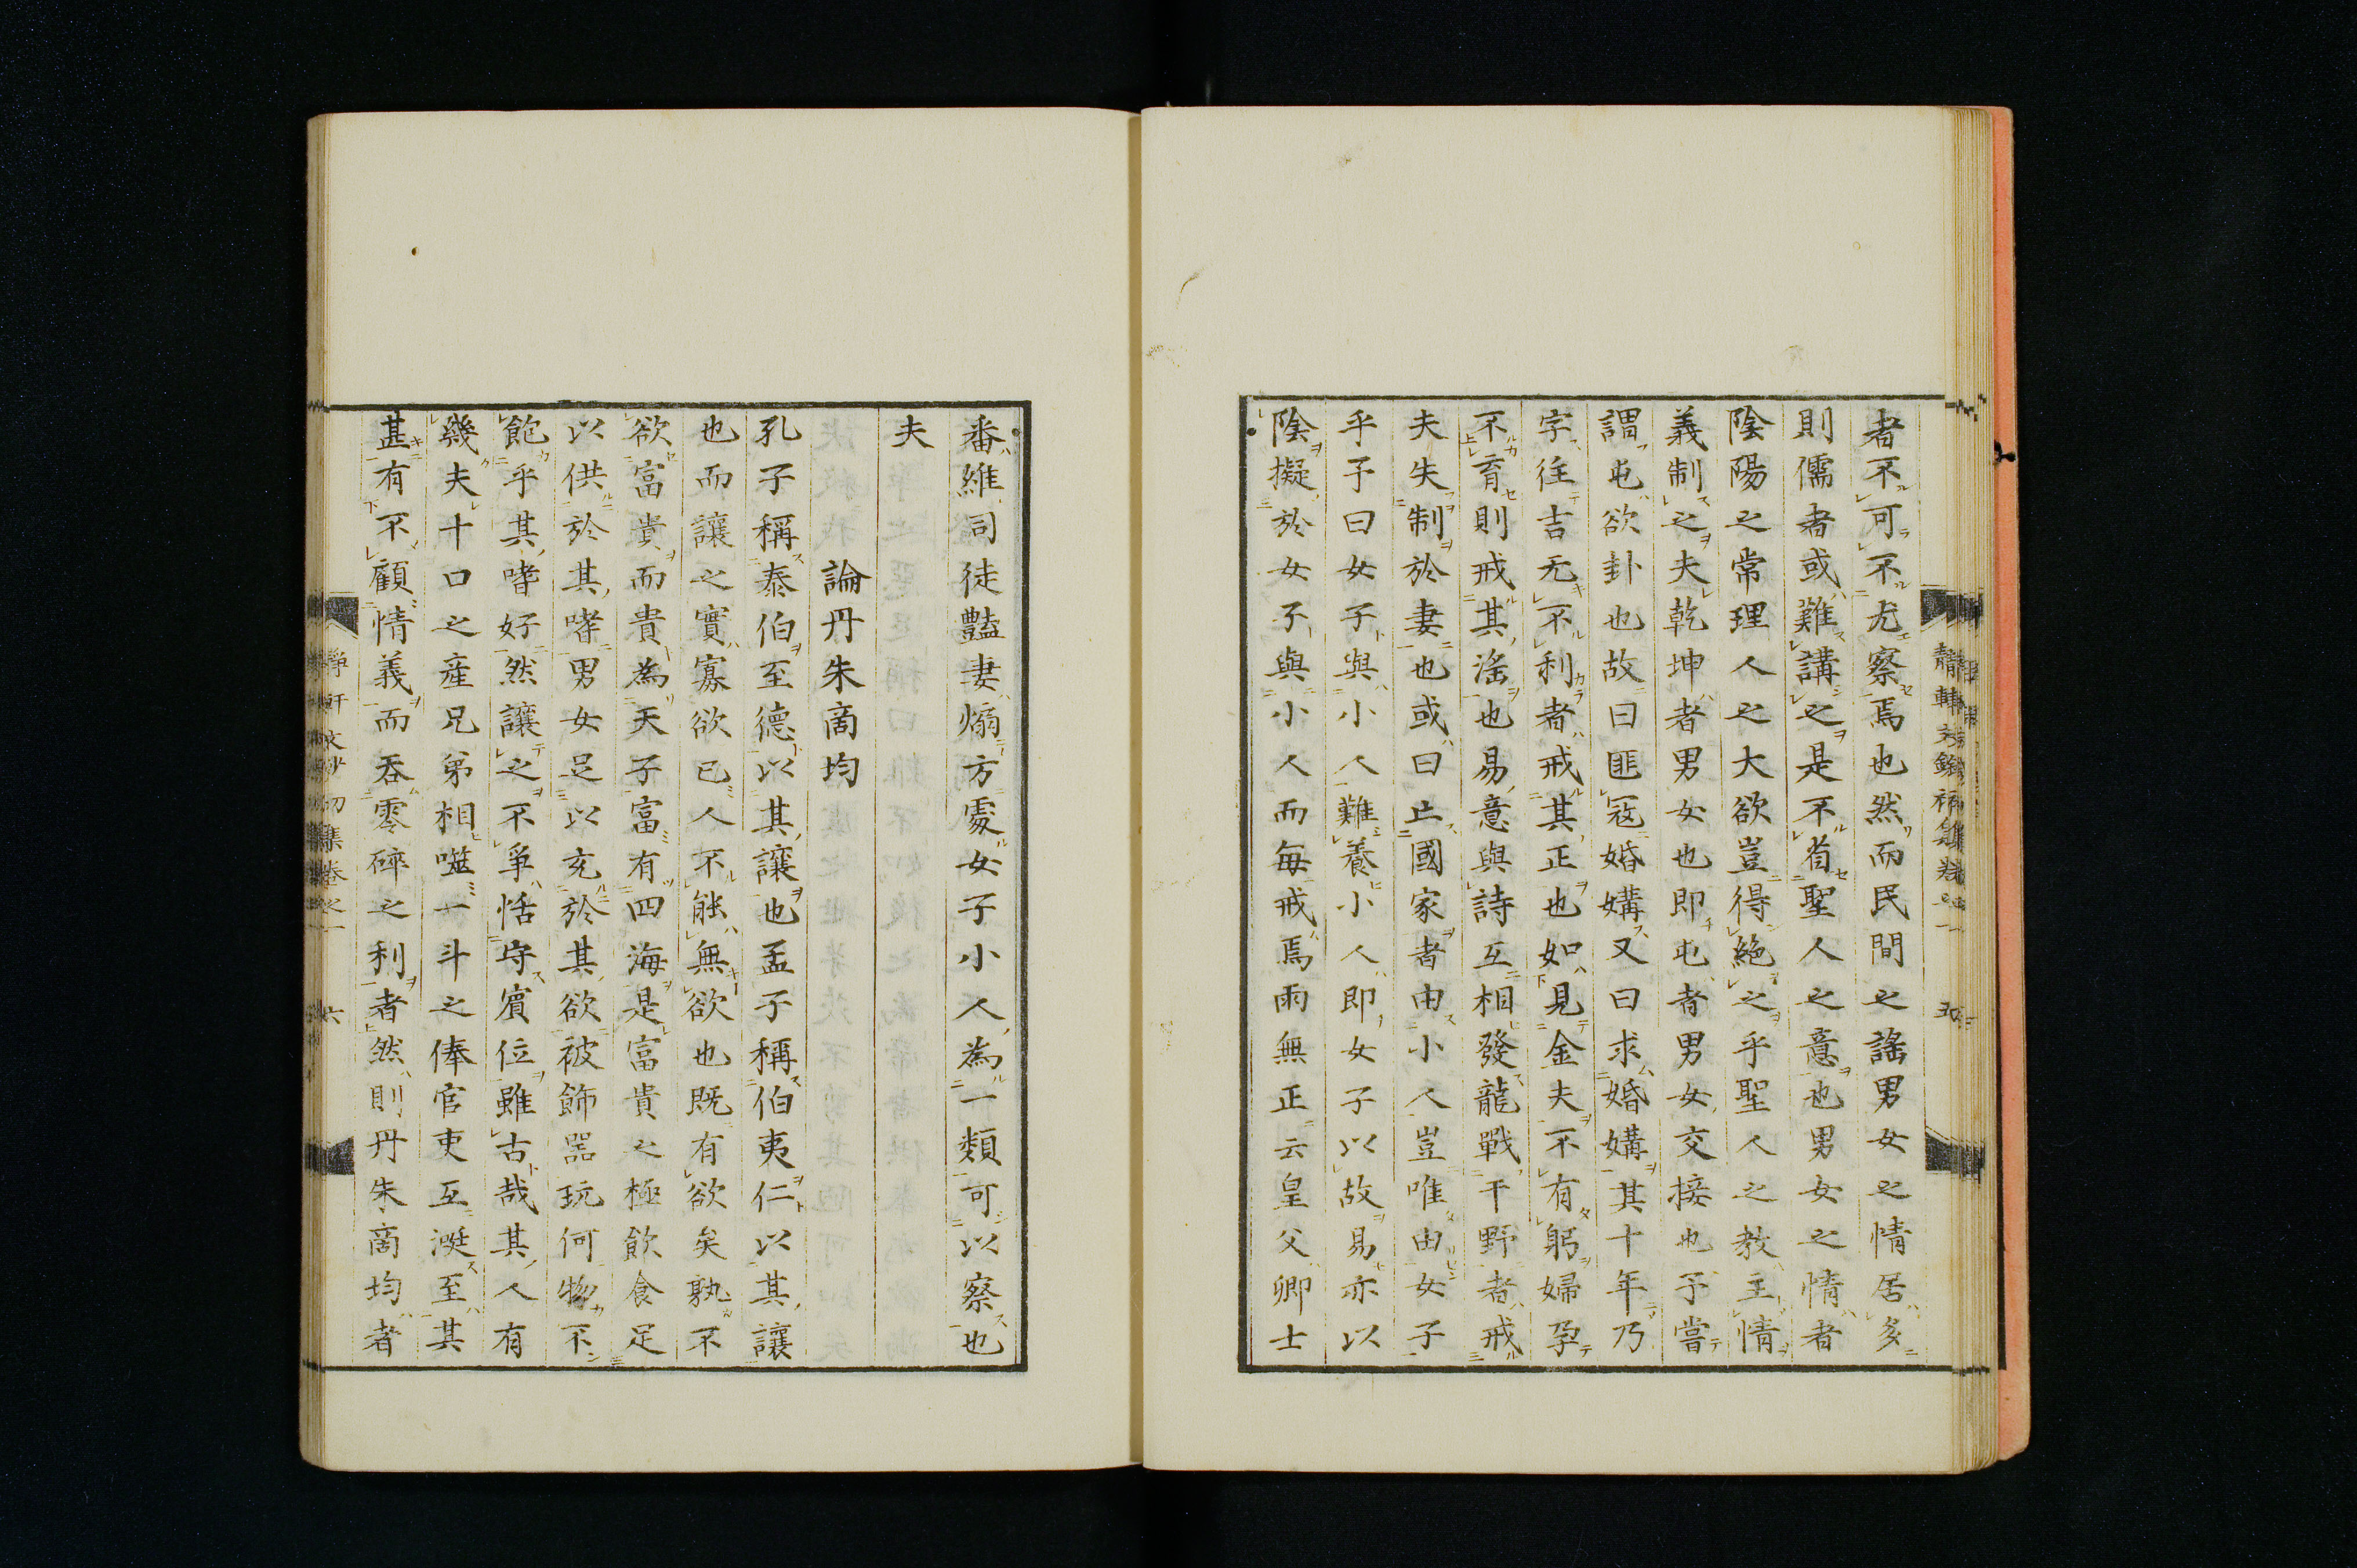 者不可不尤察焉也然而民間之謠男女之情居多
則儒者或難講之是不省聖人之意也男女之情者
陰陽之常理人之大欲豈得絕之乎聖人之教主情
義制之夫乾坤者男女也即屯者男女交接也予嘗
謂屯欲卦也故曰匪寇婚媾又曰求婚媾其十年乃
字往吉无不利者戒其正也如見金夫不有躬婦孕
不育則戒其滛也易意與詩互相發龍戰干野者戒
夫失制於妻也或曰亡國家者由小人豈唯由女子
乎子曰女子與小人難養小人即女子以故易亦以
陰擬於女子與小人而每戒焉雨無正云皇父卿士
番維司徒豔妻煽方處女子小人為一類可以察也
夫
論丹朱商均
孔子稱泰伯至德以其讓也孟子稱伯夷仁以其讓
也而讓之實寡欲已人不能無欲也既有欲矣孰不
欲富貴而貴為天子富有四海是富貴之極飲食足
以供於其嗜男女足以充於其欲被飾器玩何物不
飽乎其嗜好然讓之不爭恬守賓位雖古哉其人有
幾夫十口之產兄弟相噬一斗之俸官吏互涎至其
甚有不顧情義而吞零碎之利者然則丹朱商均者